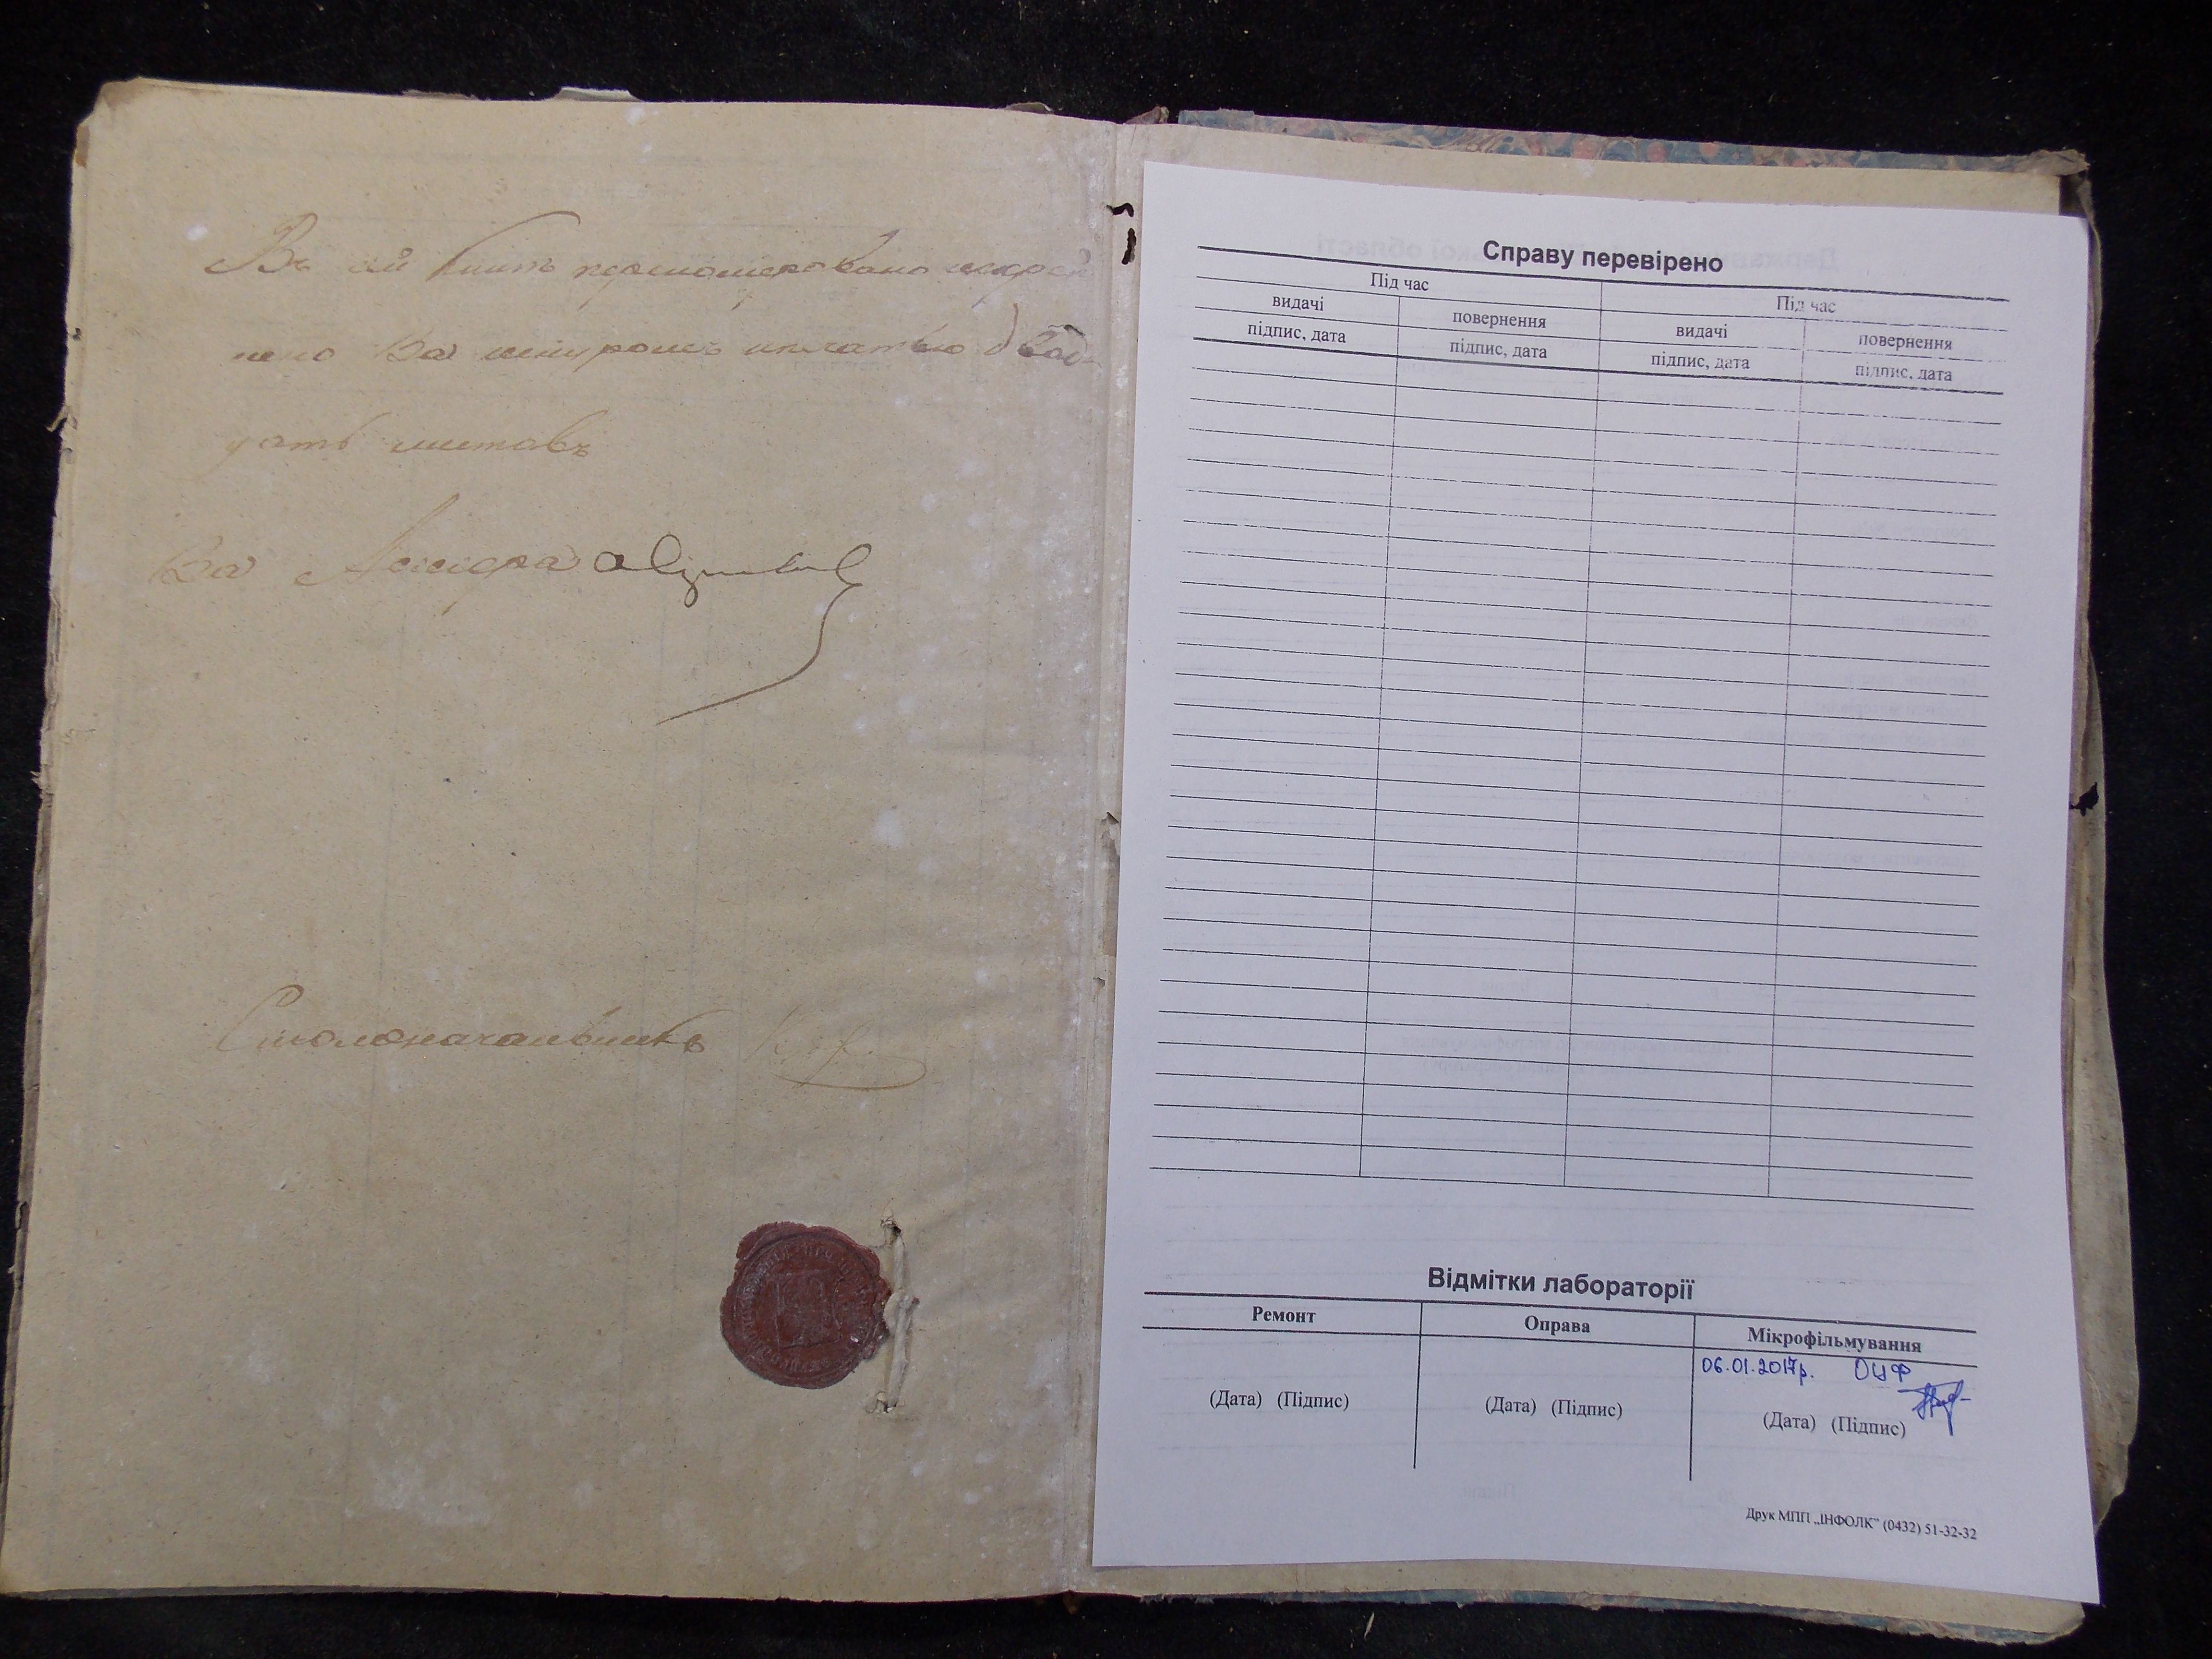 Въ сей книгѣ перномеровано искреп
лено за шнуромъ и печатью двад-
цать листовъ
За
Столоначальникъ
Справу перевірено
Під час Під час
видачі повернення видачі повернення
підпис, дата підпис, дата підпис, дата підпис, дата
Відмітки лабораторії
Ремонт Оправа Мікрофільмування
06.01.2017р. ОЦФ
(Дата) (Підпис) (Дата) (Підпис) (Дата) (Підпис)
Друк МПП „ІНФОЛК" (0432) 51-32-32